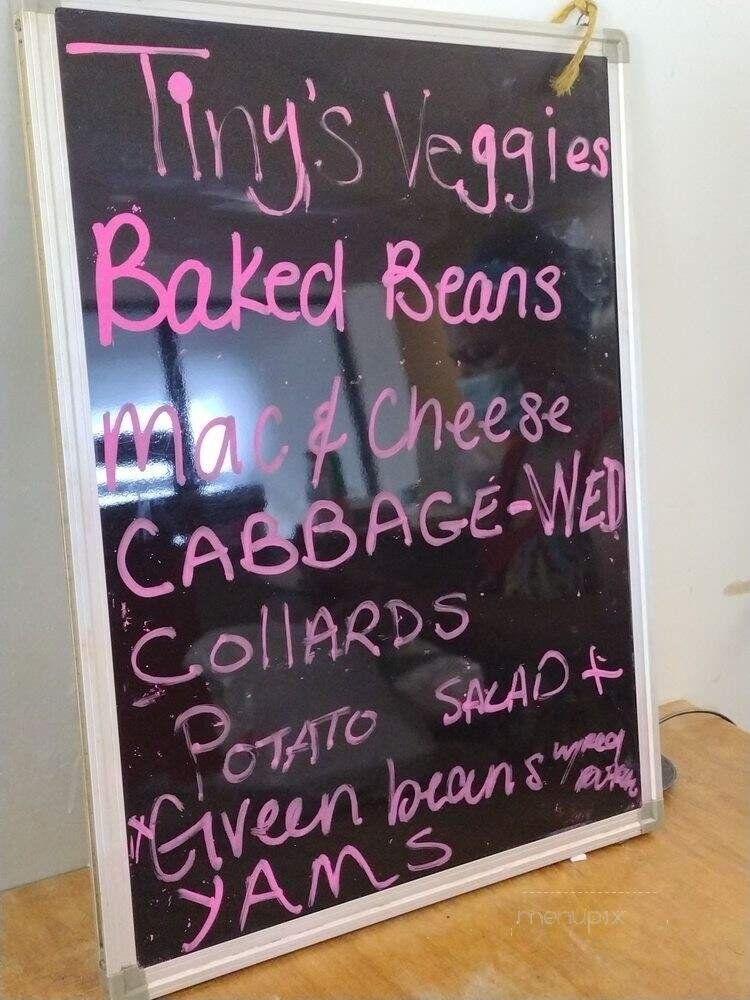 Tiny's Veggies
Baked Beans
Mac & Cheese
CABBAGE-WED
CollARDS
POTATO SALAD +
*Green beans w/Red
YAMS
menupix